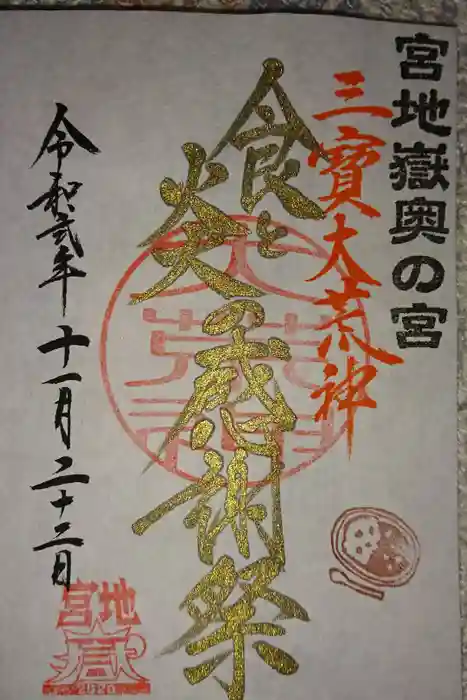 宮地嶽奥の宮
三寳大荒神
食と火の感謝祭
令和弐年
十一月二十三日
地
宮
嶽